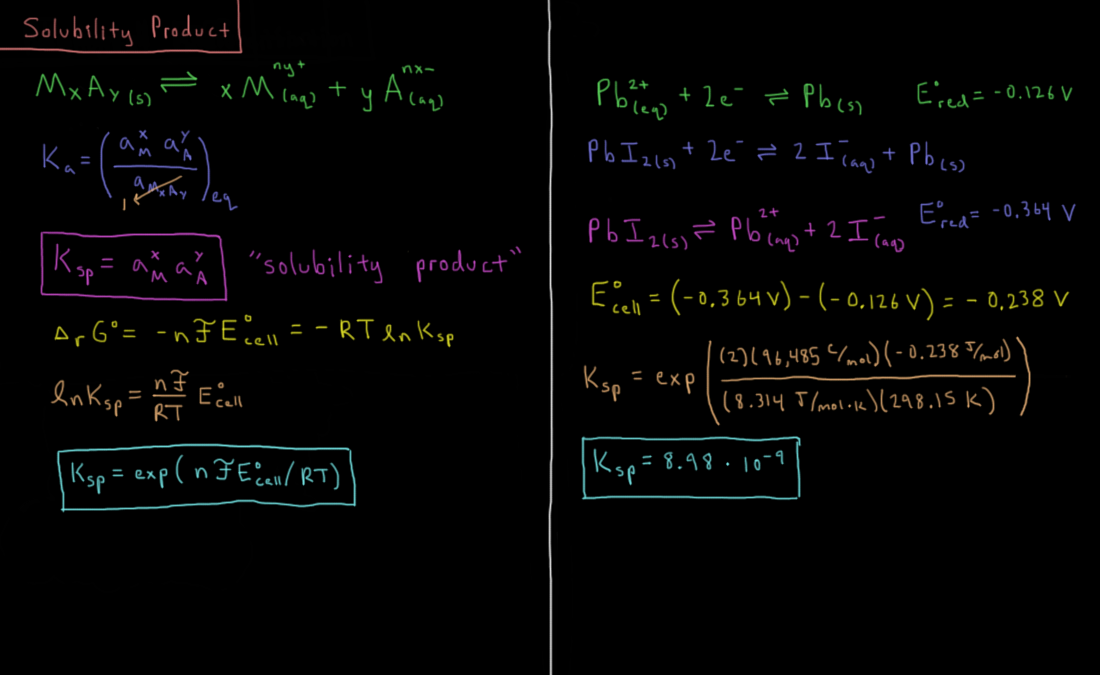 Solubility Product
MxAy(s) ⇌ x M^ny+(aq) + y A^nx-(aq)
Ka = (a_M^x a_A^y / a_MxAy)eq
1
Ksp = a_M^x a_A^y "solubility product"
ΔrG° = -nℱE°cell = -RT ln Ksp
ln Ksp = nℱ/RT E°cell
Ksp = exp(nℱE°cell/RT)
Pb^2+(eq) + 2e^- ⇌ Pb(s) E°red = -0.126 V
PbI2(s) + 2e^- ⇌ 2 I^-(aq) + Pb(s)
E°red = -0.364 V
PbI2(s) ⇌ Pb^2+(aq) + 2 I^-(aq)
E°cell = (-0.364 V) - (-0.126 V) = -0.238 V
Ksp = exp((2)(96,485 C/mol)(-0.238 J/mol) / (8.314 J/mol·K)(298.15 K))
Ksp = 8.98 · 10^-9